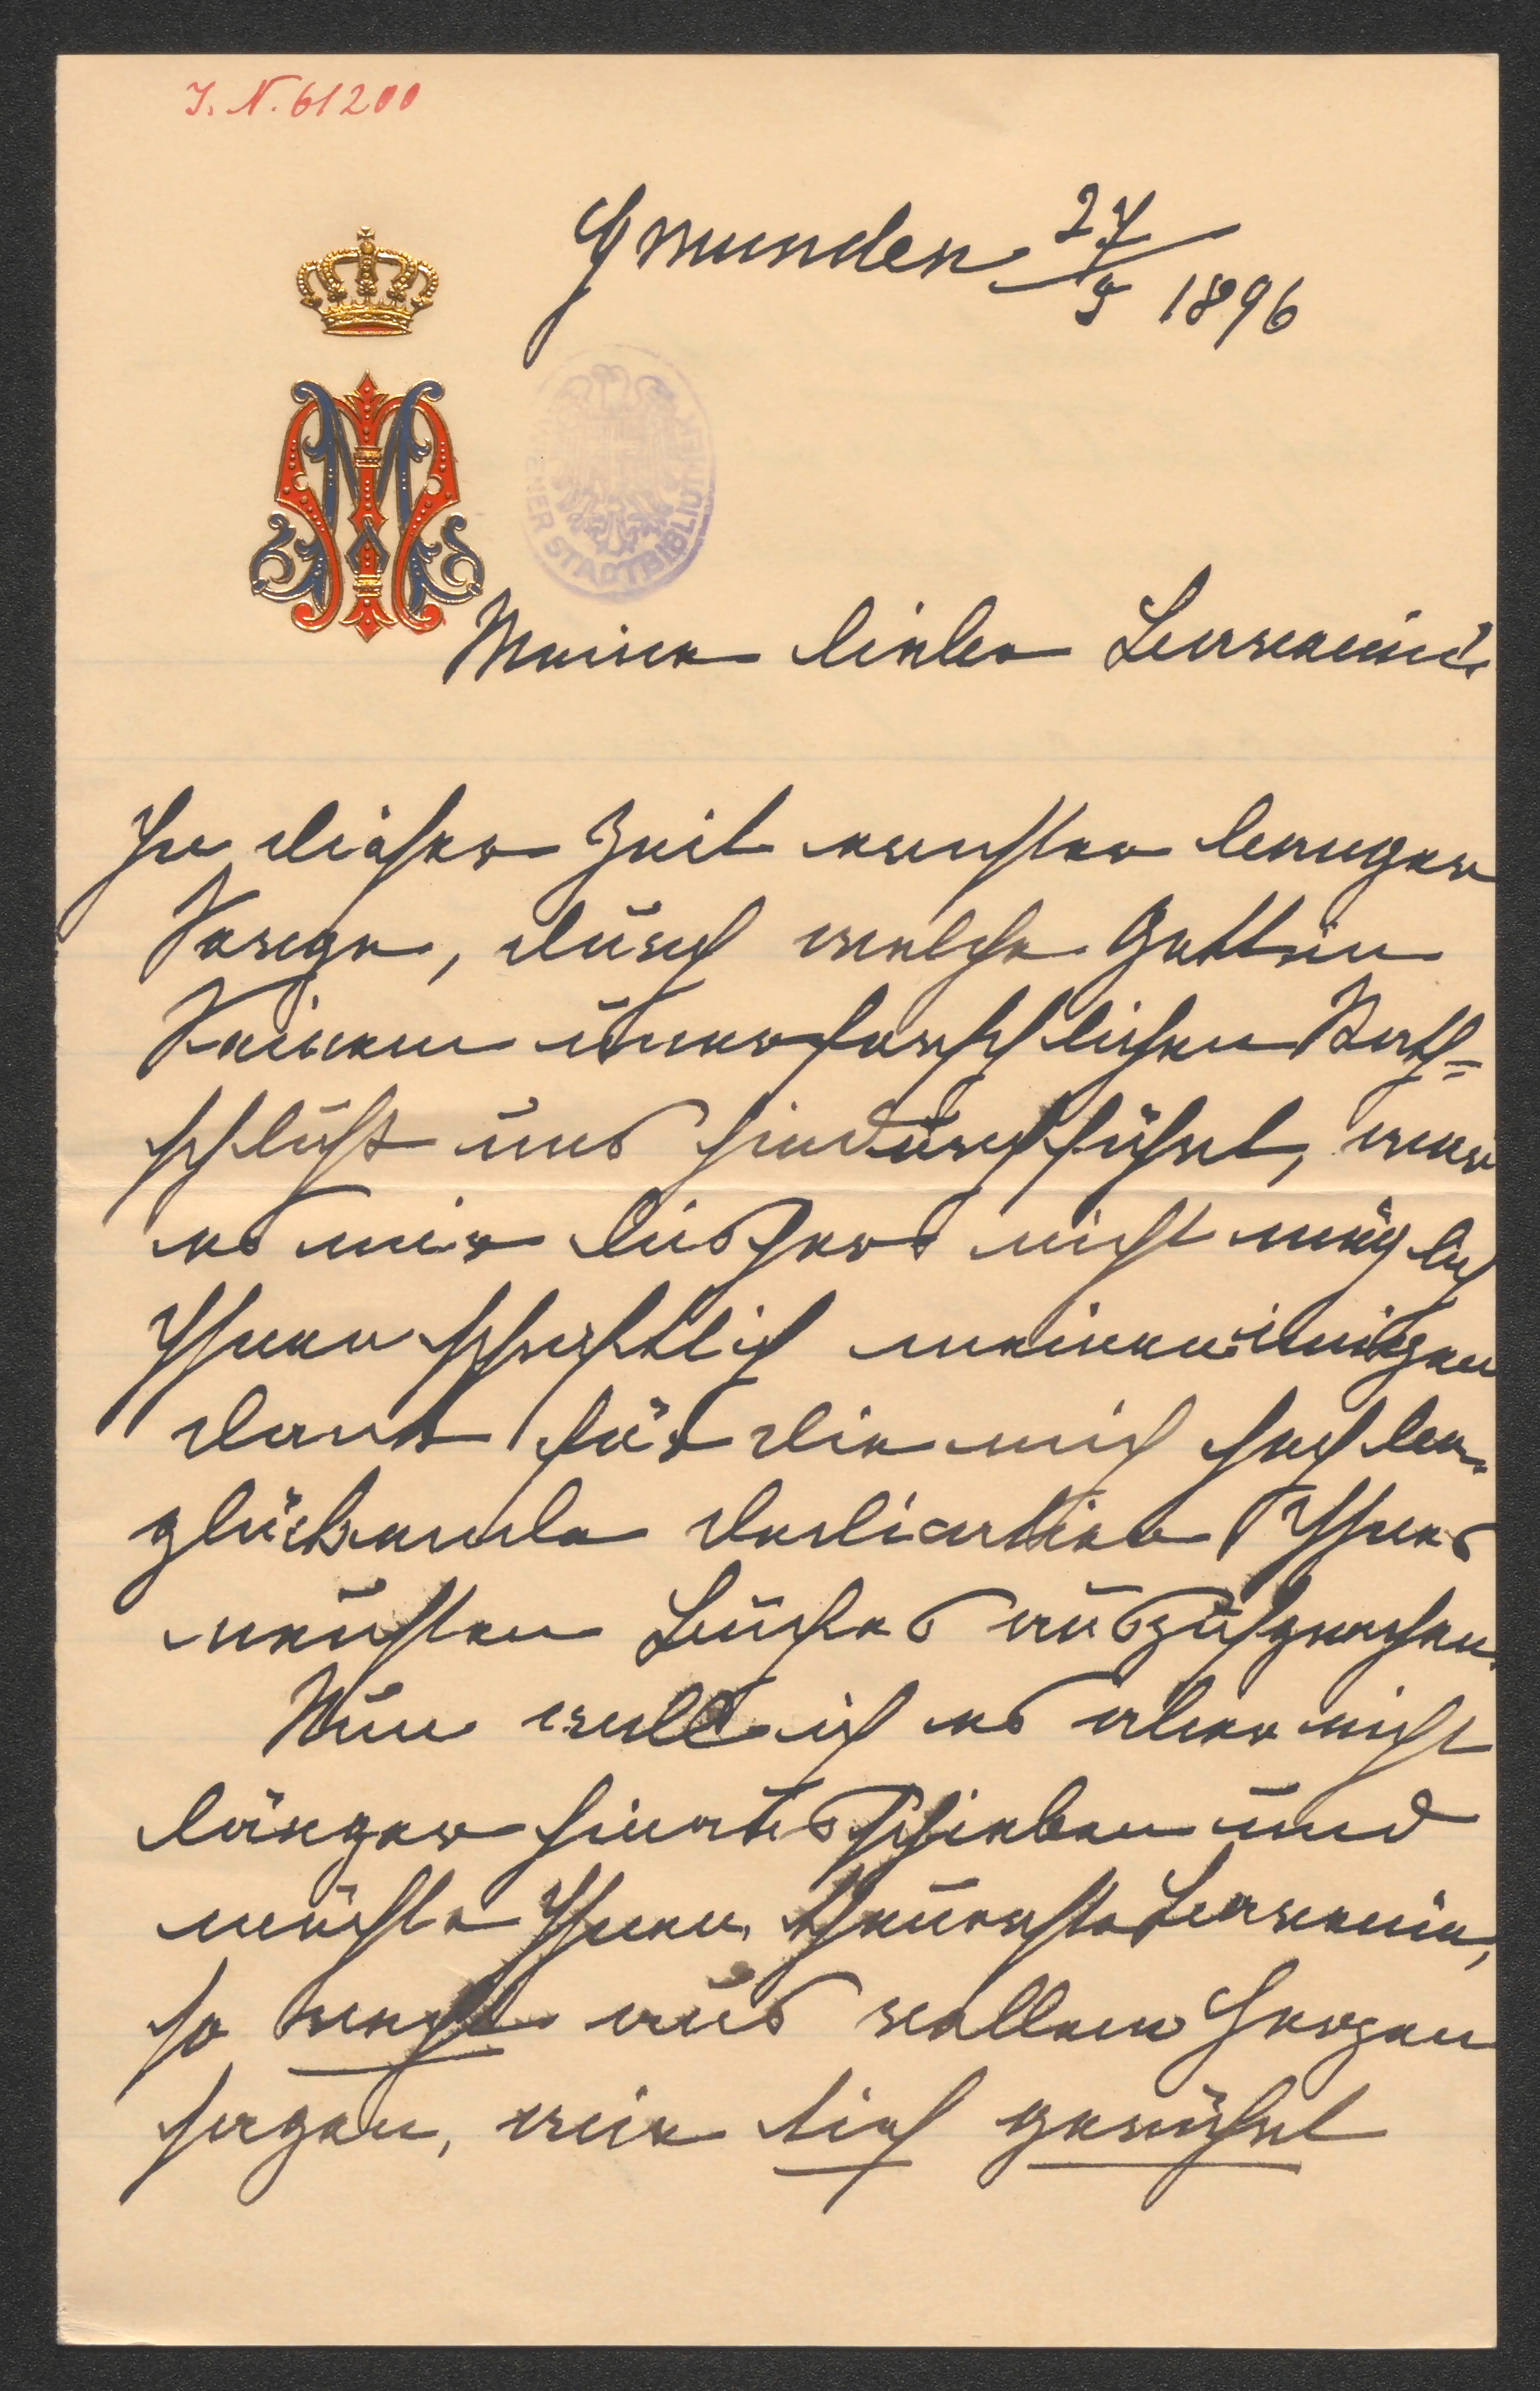 I. N. 61200
Gmunden 27/5 1896
WIENER STADTBIBLIOTHEK
Meine liebe Baronin!
In dieser Zeit ernster banger
Sorge, durch welche Gott in
Seinem unerforschlichen Rath=
schluß uns hindurchführt, war
es mir bisher nicht möglich
Ihnen schriftlich meinen innigen
Dank für die mich hoch be-
glückende Dedication Ihres
neusten Buches auszusprechen.
Nun will ich es aber nicht
länger hinausschieben und
möchte Ihnen, theuerste Baronin,
so recht aus vollem Herzen
sagen, wie tief gerührt